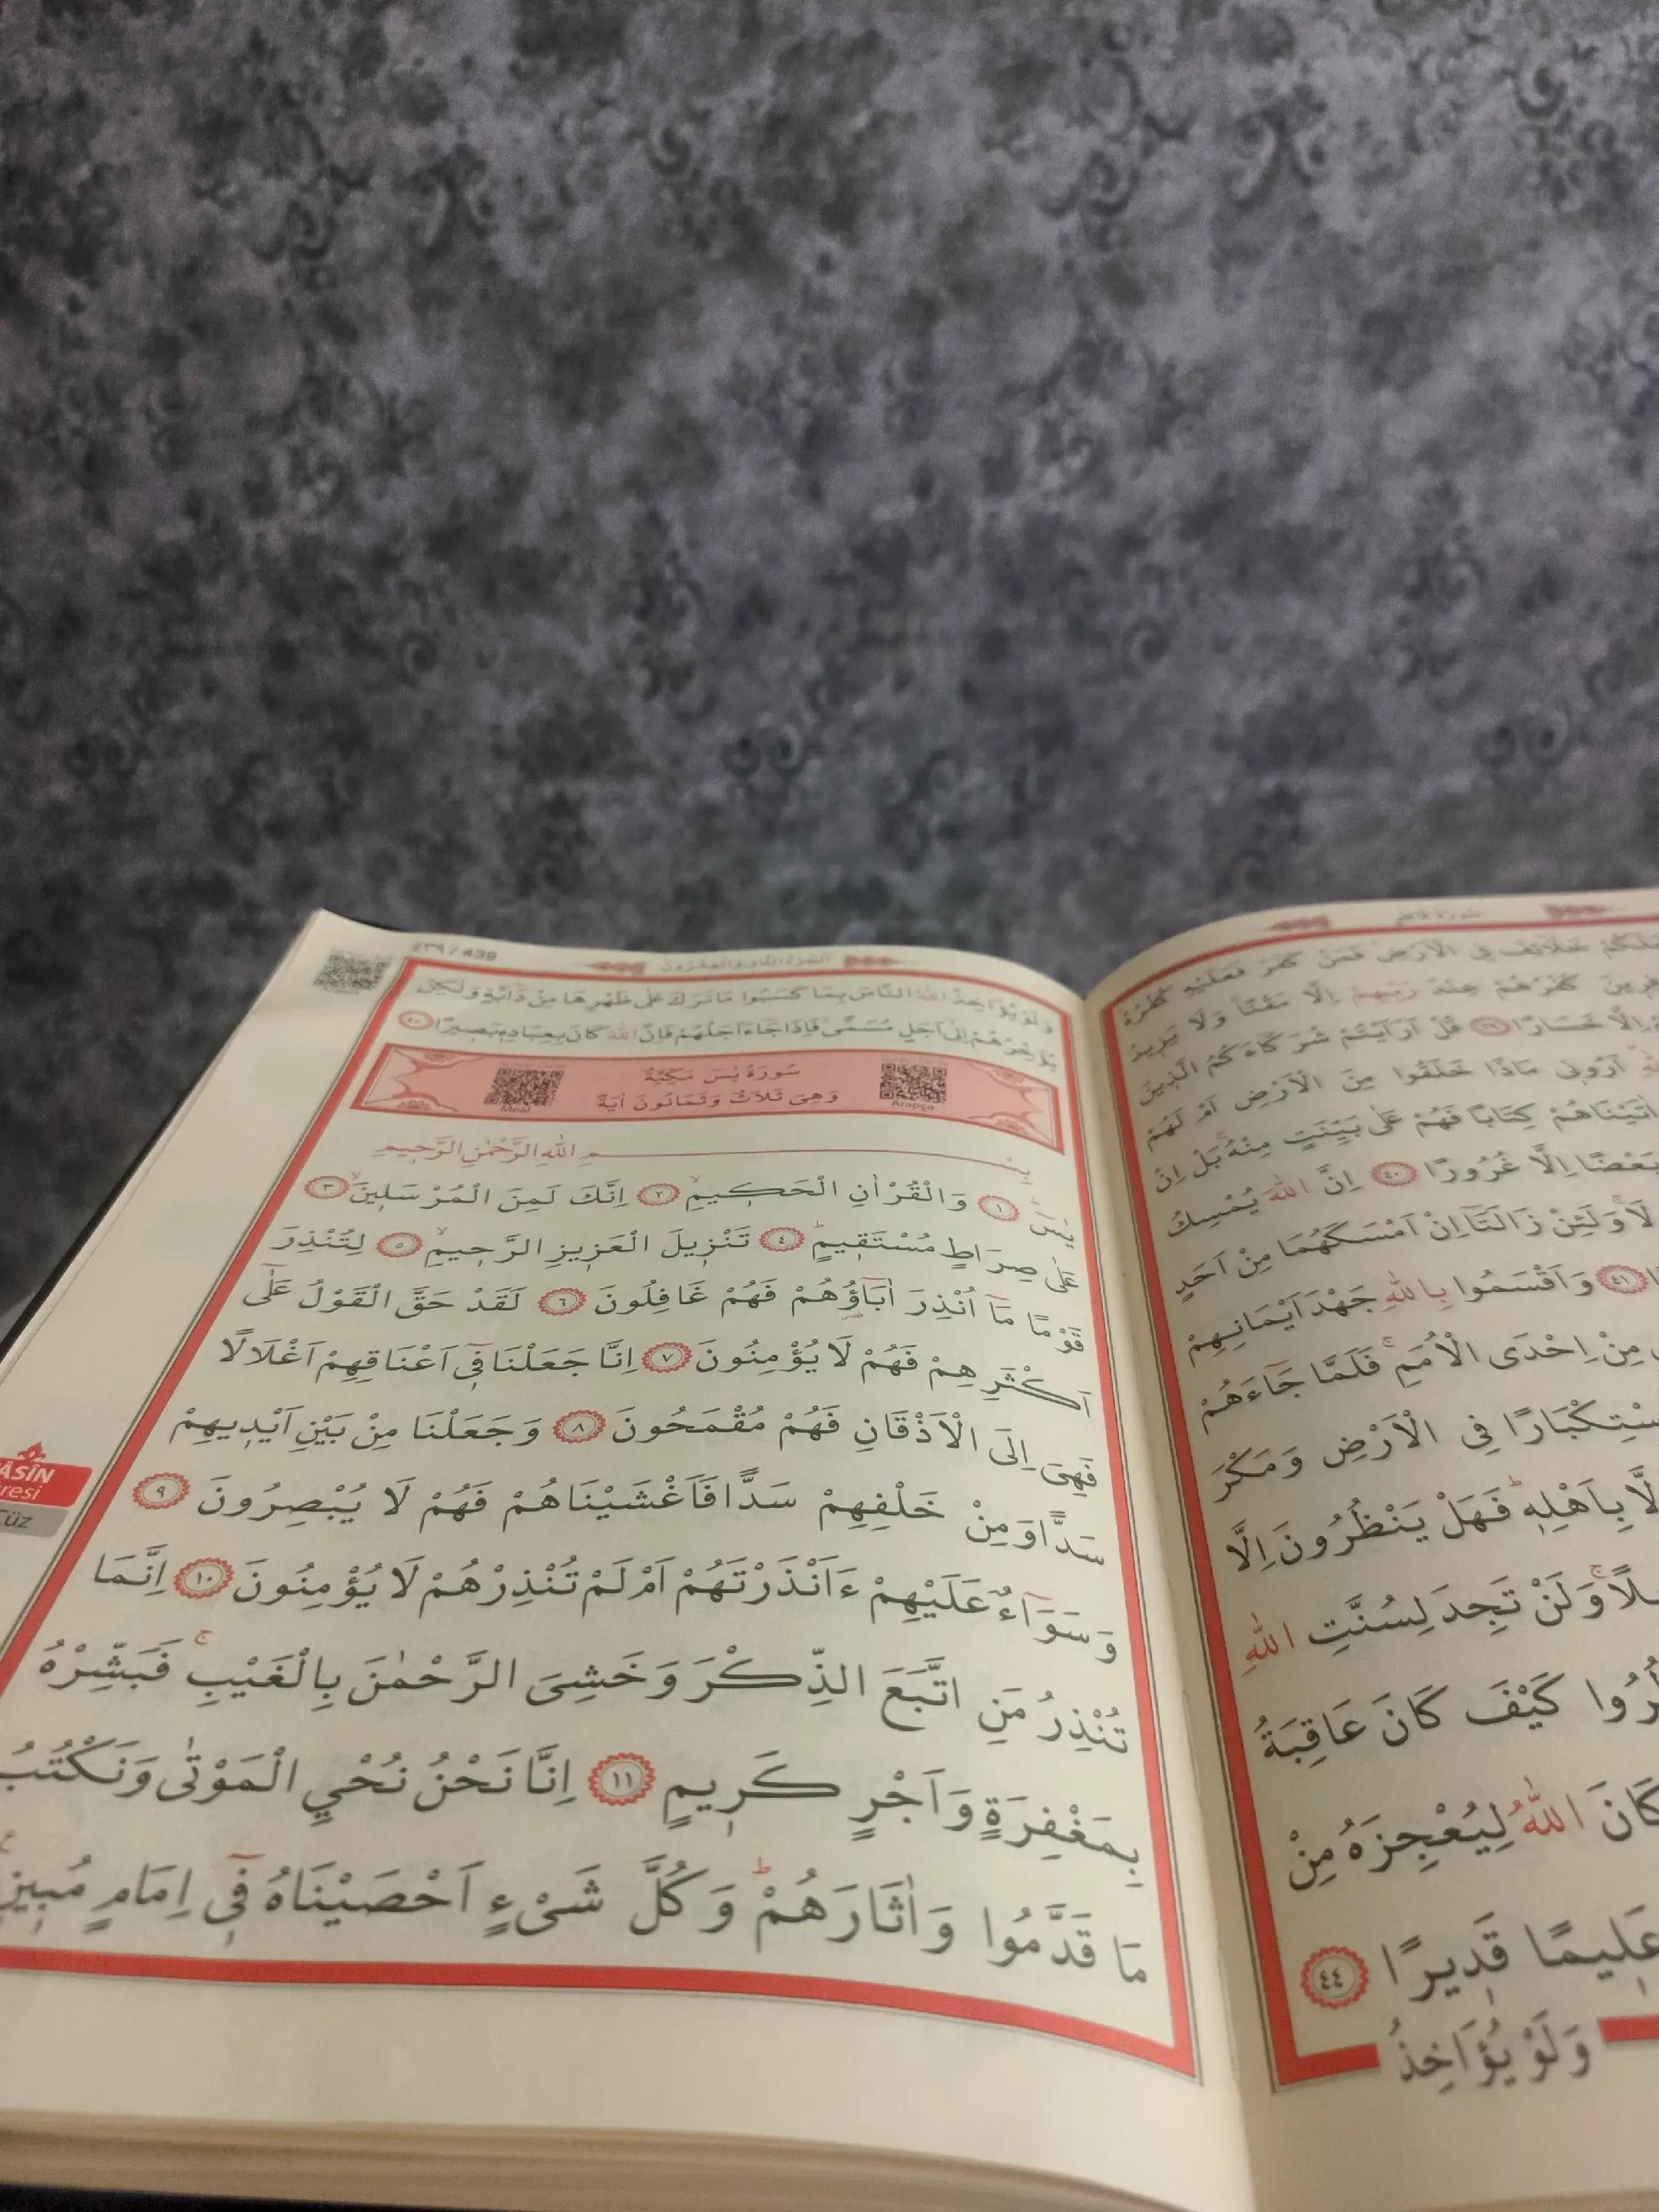 سُورَةُ فَاطِرٍ
خَلَٓائِفَ فِي الْاَرْضِ فَمَنْ كَفَرَ فَعَلَيْهِ كُفْرُهُ
كُفْرُهُمْ عِنْدَ رَبِّهِمْ اِلَّا مَقْتًا وَلَا يَزِيدُ
اِلَّا خَسَارًا ٣٩ قُلْ اَرَاَيْتُمْ شُرَكَٓاءَكُمُ الَّذِينَ
اَرُونِي مَاذَا خَلَقُوا مِنَ الْاَرْضِ اَمْ لَهُمْ
اٰتَيْنَاهُمْ كِتَابًا فَهُمْ عَلٰى بَيِّنَتٍ مِنْهُ بَلْ اِنْ
بَعْضًا اِلَّا غُرُورًا ٤٠ اِنَّ اللّٰهَ يُمْسِكُ
وَلَئِنْ زَالَتَٓا اِنْ اَمْسَكَهُمَا مِنْ اَحَدٍ
٤١ وَاَقْسَمُوا بِاللّٰهِ جَهْدَ اَيْمَانِهِمْ
مِنْ اِحْدَى الْاُمَمِ فَلَمَّا جَٓاءَهُمْ
فِي الْاَرْضِ وَمَكْرَ
بِاَهْلِهٖ فَهَلْ يَنْظُرُونَ اِلَّا
وَلَنْ تَجِدَ لِسُنَّتِ اللّٰهِ
كَيْفَ كَانَ عَاقِبَةُ
كَانَ اللّٰهُ لِيُعْجِزَهُ مِنْ
عَلِيمًا قَدِيرًا ٤٤
وَلَوْ يُؤَاخِذُ
٤٣٩ / 439
اَلْجُزْءُ الثَّانِي وَالْعِشْرُونَ
وَلَوْ يُؤَاخِذُ اللّٰهُ النَّاسَ بِمَا كَسَبُوا مَا تَرَكَ عَلٰى ظَهْرِهَا مِنْ دَٓابَّةٍ وَلٰكِنْ
يُؤَخِّرُهُمْ اِلٰٓى اَجَلٍ مُسَمًّى فَاِذَا جَٓاءَ اَجَلُهُمْ فَاِنَّ اللّٰهَ كَانَ بِعِبَادِهٖ بَصِيرًا ٤٥
سُورَةُ يٰسٓ مَكِّيَّةٌ
وَهِيَ ثَلَاثٌ وَثَمَانُونَ اٰيَةً
Arapça
Meal
بِسْمِ اللّٰهِ الرَّحْمٰنِ الرَّحِيمِ
يٰسٓ ١ وَالْقُرْاٰنِ الْحَكِيمِ ٢ اِنَّكَ لَمِنَ الْمُرْسَلِينَ ٣
عَلٰى صِرَاطٍ مُسْتَقِيمٍ ٤ تَنْزِيلَ الْعَزِيزِ الرَّحِيمِ ٥ لِتُنْذِرَ
قَوْمًا مَٓا اُنْذِرَ اٰبَٓاؤُهُمْ فَهُمْ غَافِلُونَ ٦ لَقَدْ حَقَّ الْقَوْلُ عَلٰٓى
اَكْثَرِهِمْ فَهُمْ لَا يُؤْمِنُونَ ٧ اِنَّا جَعَلْنَا فِٓي اَعْنَاقِهِمْ اَغْلَالًا
فَهِيَ اِلَى الْاَذْقَانِ فَهُمْ مُقْمَحُونَ ٨ وَجَعَلْنَا مِنْ بَيْنِ اَيْدِيهِمْ
سَدًّا وَمِنْ خَلْفِهِمْ سَدًّا فَاَغْشَيْنَاهُمْ فَهُمْ لَا يُبْصِرُونَ ٩
وَسَوَٓاءٌ عَلَيْهِمْ ءَاَنْذَرْتَهُمْ اَمْ لَمْ تُنْذِرْهُمْ لَا يُؤْمِنُونَ ١٠ اِنَّمَا
تُنْذِرُ مَنِ اتَّبَعَ الذِّكْرَ وَخَشِيَ الرَّحْمٰنَ بِالْغَيْبِ فَبَشِّرْهُ
بِمَغْفِرَةٍ وَاَجْرٍ كَرِيمٍ ١١ اِنَّا نَحْنُ نُحْيِ الْمَوْتٰى وَنَكْتُبُ
مَا قَدَّمُوا وَاٰثَارَهُمْ وَكُلَّ شَيْءٍ اَحْصَيْنَاهُ فِٓي اِمَامٍ مُبِينٍ